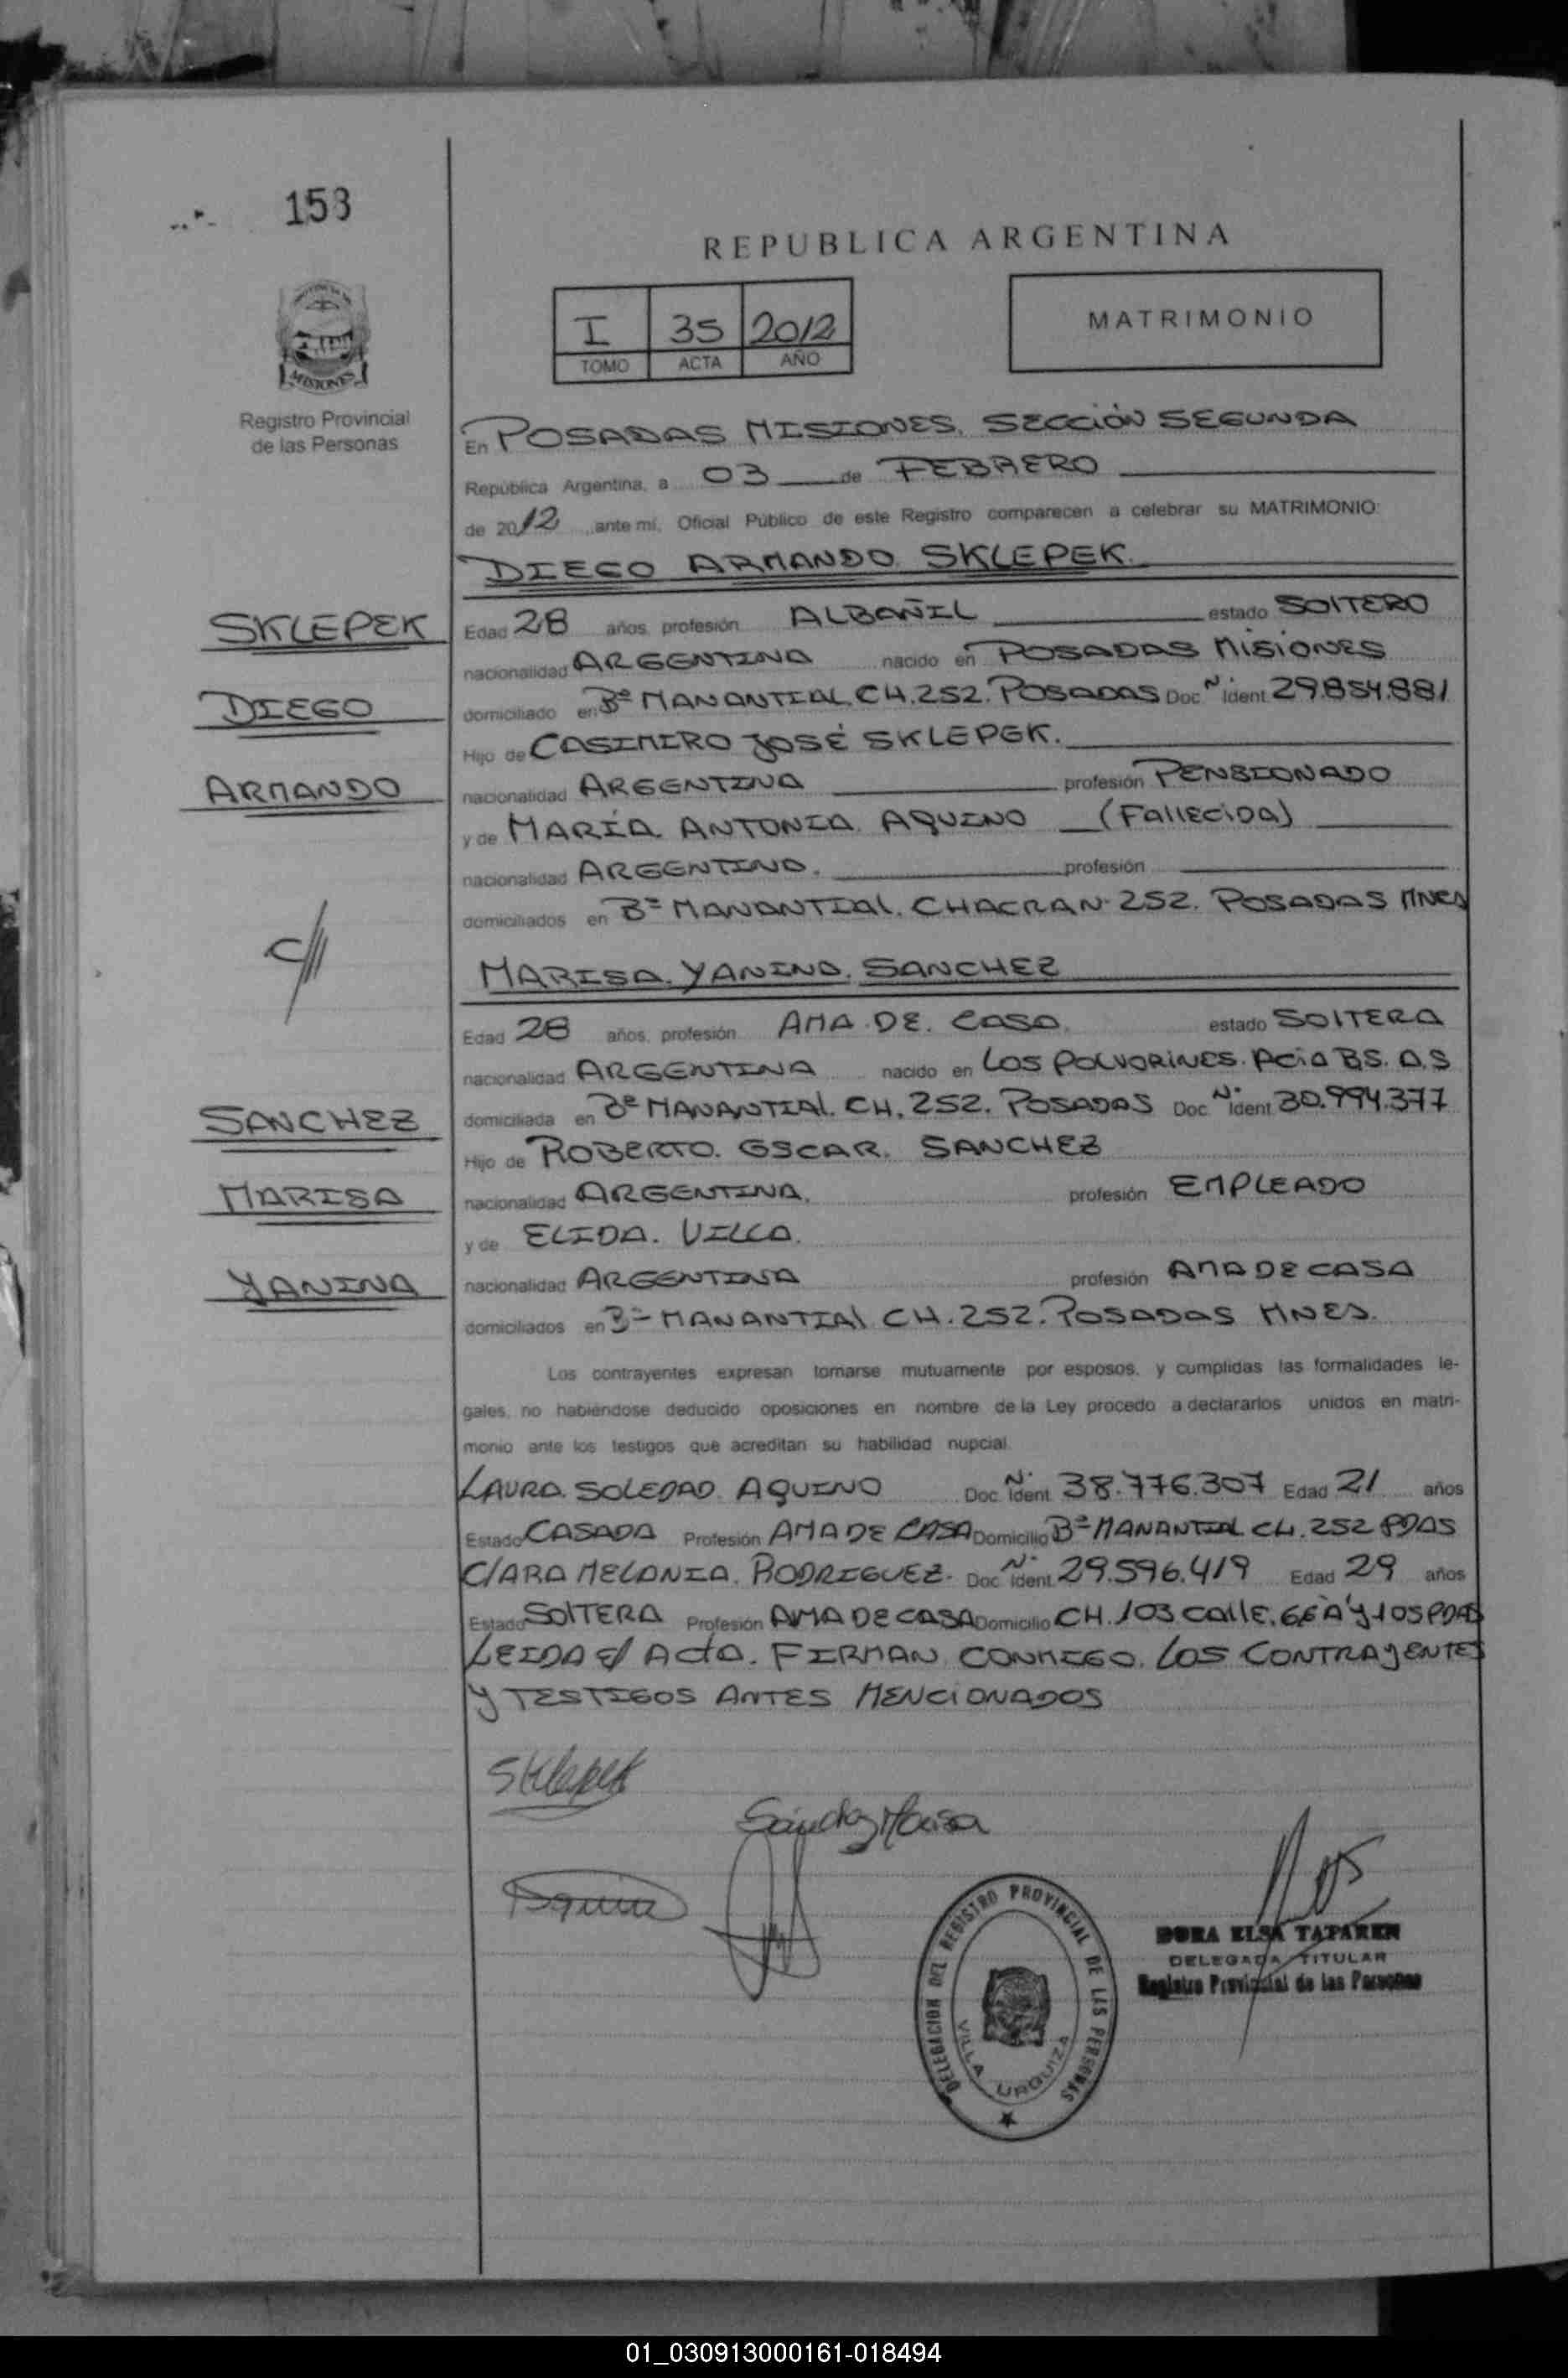 158
REPUBLICA ARGENTINA
I 35 2012
TOMO ACTA AÑO
MATRIMONIO
MISIONES
Registro Provincial
de las Personas
En POSADAS MISIONES. SECCIÓN SEGUNDA
República Argentina, a 03 de FEBRERO
de 2012 ante mi, Oficial Público de este Registro comparecen a celebrar su MATRIMONIO:
DIEGO ARMANDO SKLEPEK.
SKLEPEK
Edad 28 años, profesión ALBAÑIL estado SOLTERO
nacionalidad ARGENTINA nacido en POSADAS MISIONES
DIEGO
domiciliado en Bº MANANTIAL. CH. 252. POSADAS Doc. Nº Ident. 29.854.881
Hijo de CASIMIRO JOSÉ SKLEPEK.
ARMANDO
nacionalidad ARGENTINA profesión PENSIONADO
y de MARÍA ANTONIA AQUINO (FALLECIDA)
nacionalidad ARGENTINA. profesión
domiciliados en Bº MANANTIAL. CHACRAN. 252. POSADAS MNES
MARISA. YANINA. SANCHEZ
Edad 28 años, profesión AMA. DE. CASA. estado SOLTERA
nacionalidad ARGENTINA nacido en LOS POLVORINES. PCIA BS. A.S
SANCHEZ
domiciliada en Bº MANANTIAL. CH. 252. POSADAS Doc. Nº Ident. 30.994.377
Hijo de ROBERTO. OSCAR. SANCHEZ
MARISA
nacionalidad ARGENTINA. profesión EMPLEADO
y de ELIDA. VILLA.
YANINA
nacionalidad ARGENTINA profesión AMA DE CASA
domiciliados en Bº MANANTIAL CH. 252. POSADAS MNES.
Los contrayentes expresan tomarse mutuamente por esposos, y cumplidas las formalidades le-
gales, no habiéndose deducido oposiciones en nombre de la Ley procedo a declararlos unidos en matri-
monio ante los testigos que acreditan su habilidad nupcial.
LAURA. SOLEDAD. AQUINO Doc. Nº Ident. 38.776.307 Edad 21 años
Estado CASADA Profesión AMA DE CASA Domicilio Bº MANANTIAL CH. 252 PDAS
CLARA MELANIA. RODRIGUEZ. Doc. Nº Ident. 29.596.419 Edad 29 años
Estado SOLTERA Profesión AMA DE CASA Domicilio CH. 103 CALLE. 66A Y 105 PDAS
LEIDA el ACTA. FIRMAN CONMIGO. LOS CONTRAYENTES
Y TESTIGOS ANTES MENCIONADOS
Sklepek
Sánchez Marisa
Aquino
DELEGACION DEL REGISTRO PROVINCIAL DE LAS PERSONAS
VILLA URQUIZA
DORA ELSA TAPAREN
DELEGADA TITULAR
Registro Provincial de las Personas
01_030913000161-018494